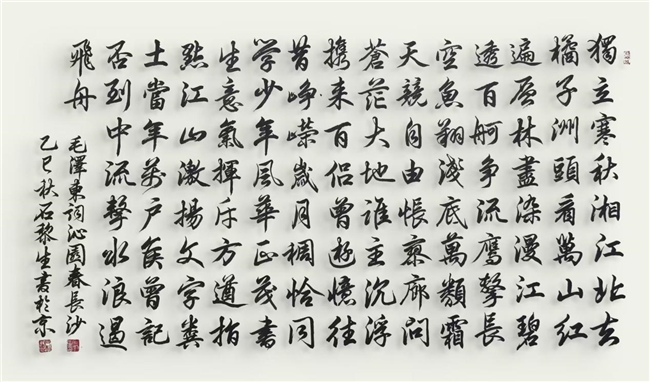 獨立寒秋湘江北去
橘子洲頭看萬山紅
遍层林盡染漫江碧
透百舸争流鷹擊長
空魚翔淺底萬類霜
天競自由悵寥廓問
蒼茫大地誰主沉浮
携来百侣曾遊憶往
昔崢嶸歲月稠恰同
学少年風華正茂書
生意氣揮斥方遒指
點江山激揚文字糞
土當年萬户侯曾記
否到中流擊水浪遏
飛舟
毛澤東詞沁園春長沙
乙巳秋石黎生書於京